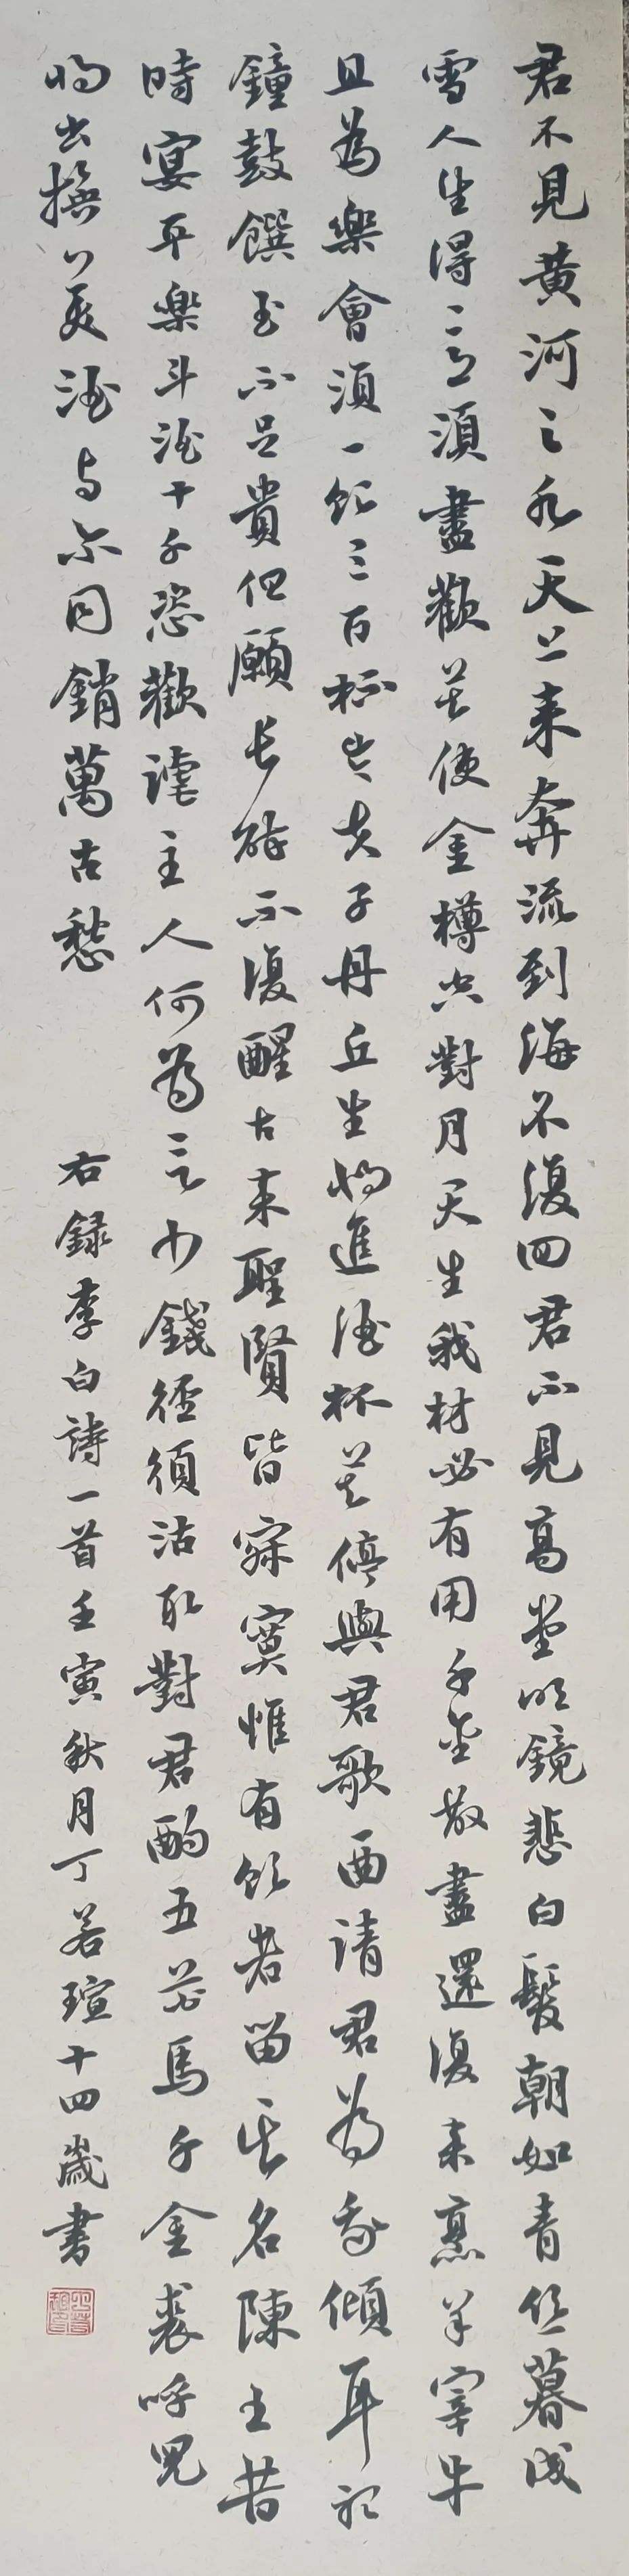 君不見黄河之水天上来奔流到海不復回君不見高堂明鏡悲白髮朝如青絲暮成
雪人生得意須盡歡莫使金樽空對月天生我材必有用千金散盡還復来烹羊宰牛
且為樂會須一飲三百杯岑夫子丹丘生将進酒杯莫停與君歌一曲請君為我傾耳聽
鐘鼓饌玉不足貴但願長醉不復醒古来聖賢皆寂寞惟有飲者留其名陳王昔
時宴平樂斗酒十千恣歡謔主人何為言少錢徑須沽取對君酌五花馬千金裘呼兒
将出換美酒与尔同銷萬古愁
右録李白詩一首壬寅秋月丁若瑄十四歲书